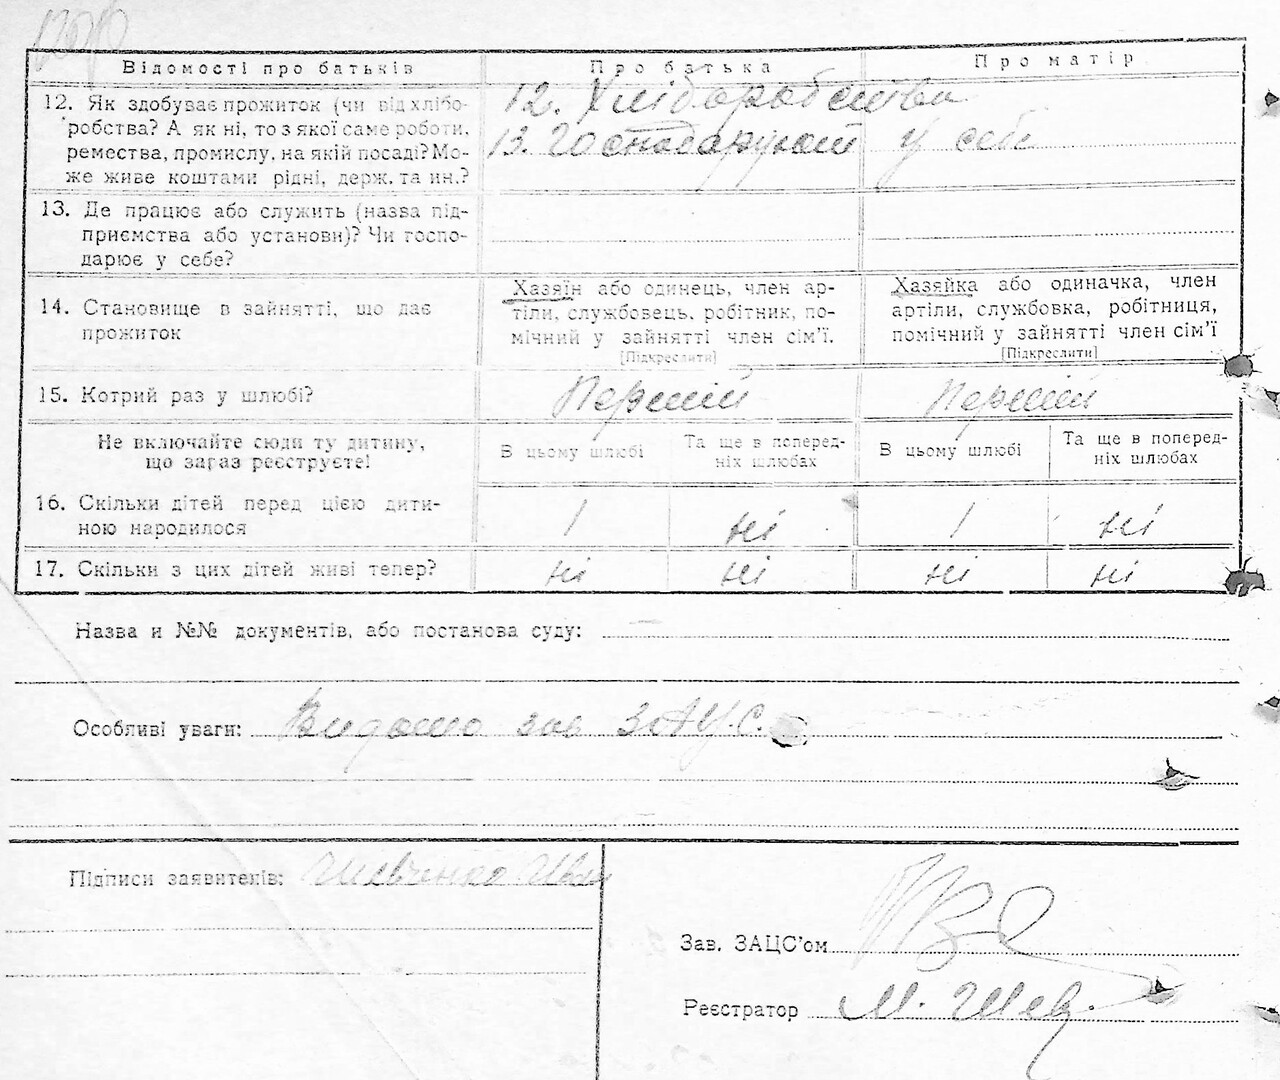 Відомості про батьків Про батька Про матір
12. Як здобуває прожиток (чи від хлібо-
робства? А як ні, то з якої саме роботи,
ремества, промислу, на якій посаді? Мо-
же живе коштами рідні, держ. та ин.?
12. Хліборобство
13. Господарюют у себе
13. Де працює або служить (назва під-
приємства або установи)? Чи госпо-
дарює у себе?
14. Становище в зайнятті, що дає
прожиток
Хазяїн або одинець, член ар-
тіли, службовець, робітник, по-
мічний у зайнятті член сім'ї.
[Підкреслити]
Хазяйка або одиначка, член
артіли, службовка, робітниця,
помічний у зайнятті член сім'ї
[Підкреслити]
15. Котрий раз у шлюбі? Перший Перший
Не включайте сюди ту дитину,
що зараз реєструєте!
В цьому шлюбі
Та ще в поперед-
ніх шлюбах
В цьому шлюбі
Та ще в поперед-
ніх шлюбах
16. Скільки дітей перед цією дити-
ною народилося
1 ні 1 ні
17. Скільки з цих дітей живі тепер? ні ні ні ні
Назва и №№ документів, або постанова суду:
Особливі уваги: Видано зав ЗАЦС.
Підписи заявителів: Шевченко Иван
Зав. ЗАЦС'ом
Реєстратор М. Шев.